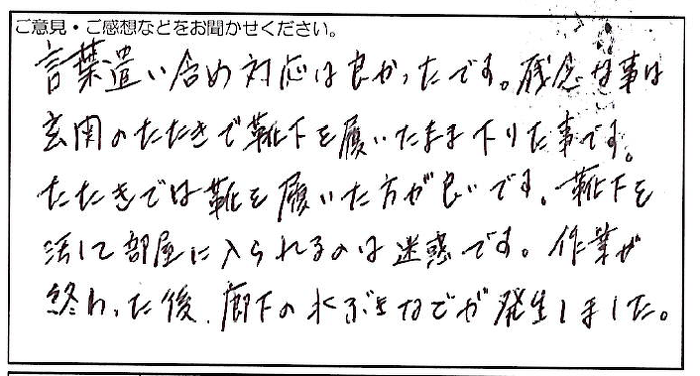 ご意見・ご感想などをお聞かせください。
言葉遣い含め対応は良かったです。残念な事は
玄関のたたきで靴下を履いたまま下りた事です。
たたきでは靴を履いた方が良いです。靴下を
汚して部屋に入られるのは迷惑です。作業が
終わった後、廊下の水ぶきなどが発生しました。